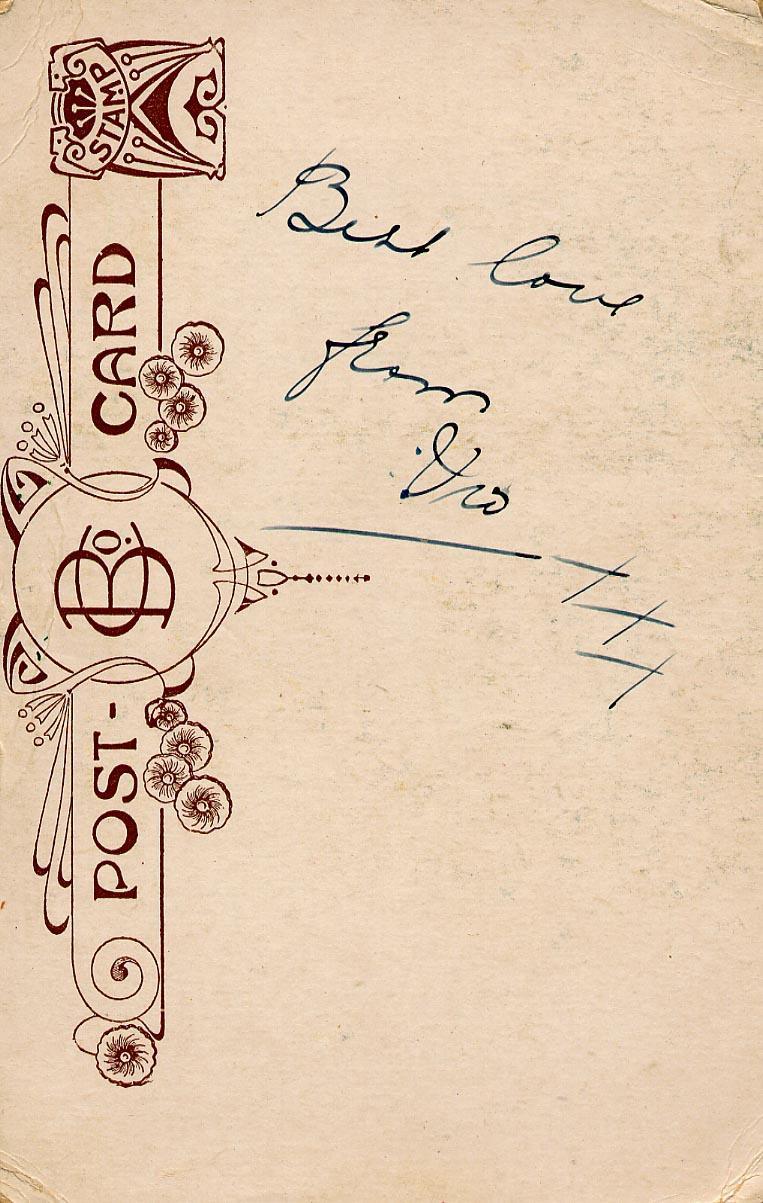 STAMP
POST-CARD
Best love
from
XXX